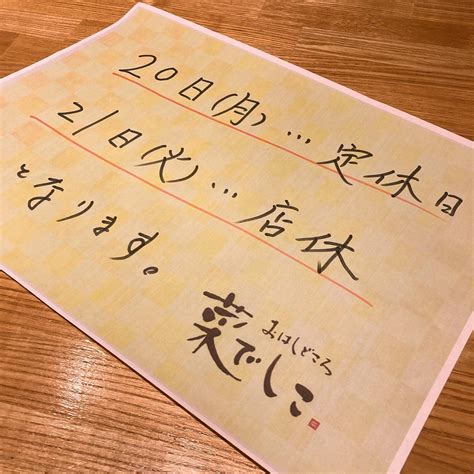 20日(月)…定休日
21日(火)…店休
となります。
おはしどころ
菜でしこ